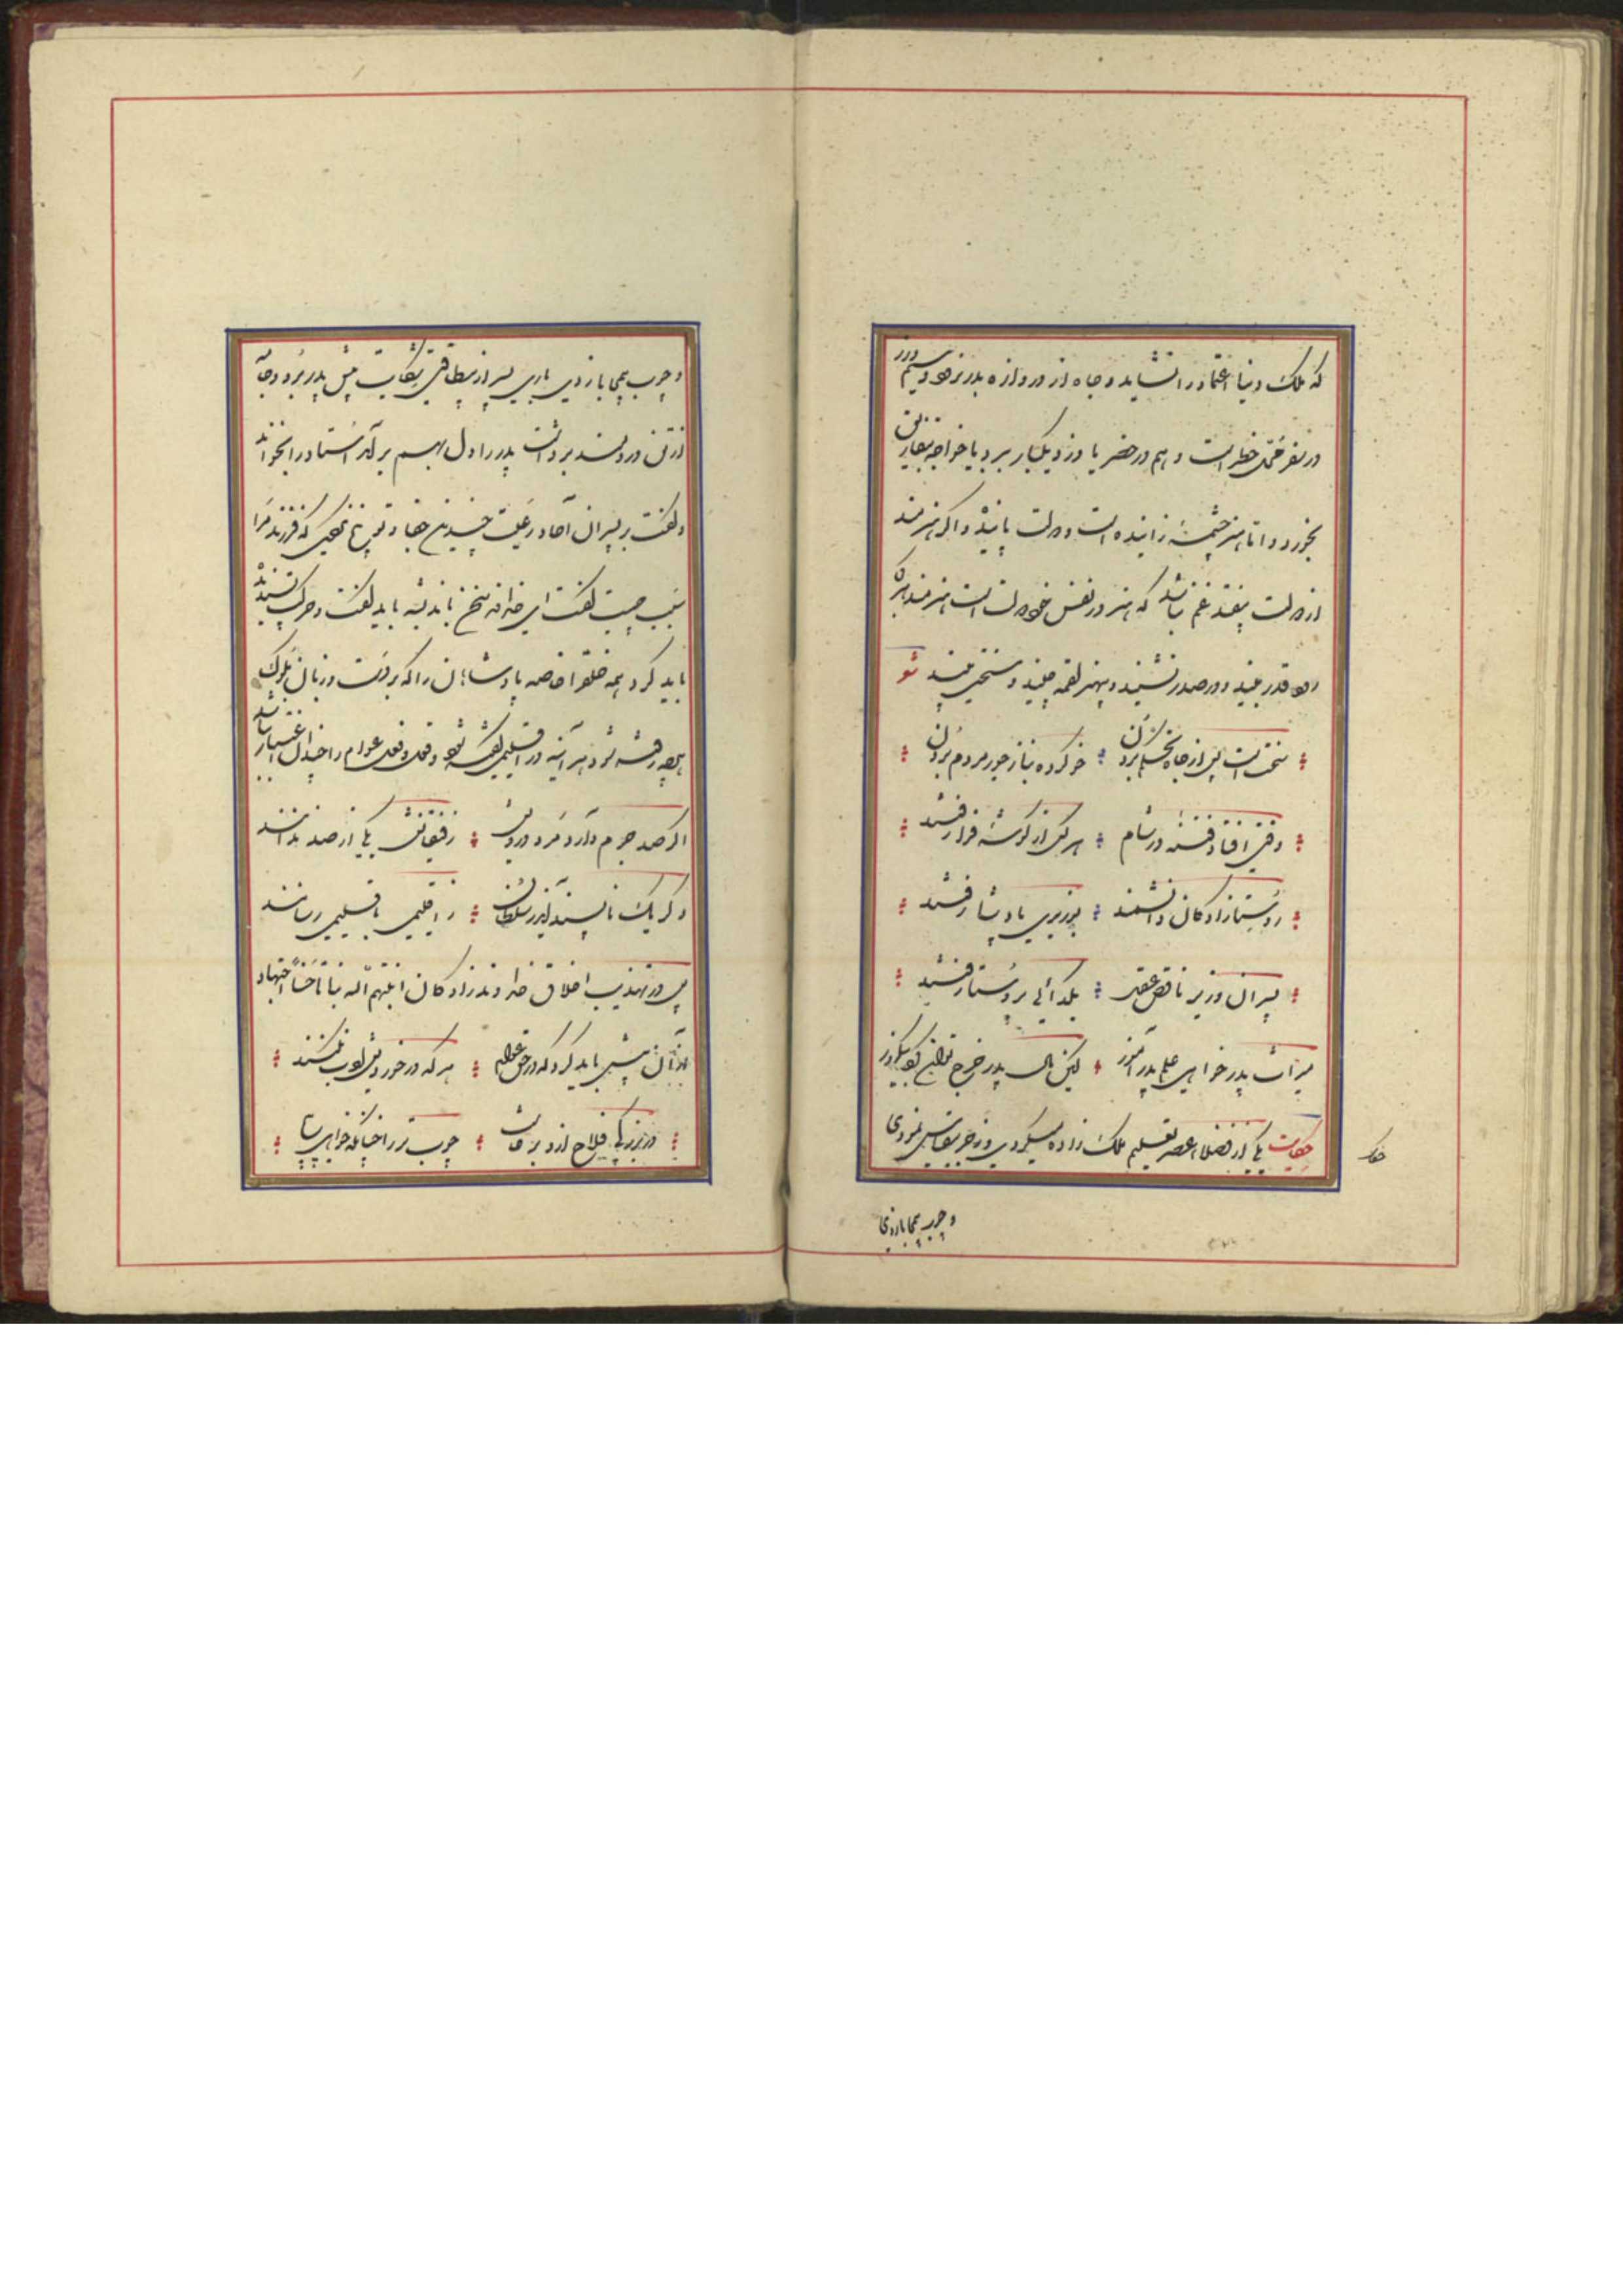 که ملک دنیا اعتماد را نشاید و جاه از دروازه بدر نرود و سیم و زر
در سفر محل خطر است و هم در حضر یا دزد بیکبار ببرد یا خواجه بتفاریق
بخورد و اما هنر چشمهٔ زاینده است و دولت پاینده و اگر هنرمند
از دولت بیفتد غم نباشد که هنر در نفس خود دولت است هنرمند هر کجا
رود قدر بیند و در صدر نشیند و بی هنر لقمه چیند و سختی بیند شعر
سختست پس از جاه تحکم بردن خو کرده بناز جور مردم بردن
وقتی افتاد فتنهٔ در شام هر یکی از گوشهٔ فرا رفتند
روستازادگان دانشمند بوزیری پادشا رفتند
پسران وزیر ناقص عقل بگدائی بروستا رفتند
میراث پدر خواهی علم پدر آموز لیکن مال پدر خرج توان کرد بیک روز
حکایت یکی از فضلاء عصر تعلیم ملک زاده میکردی و زجر بیقیاس نمودی
حکا
و ضرب بی محابا زدی
و ضرب بی محابا زدی باری پسر از بیطاقتی شکایت پیش پدر برد و جامه
از تن دردمند برداشت پدر را دل بهم برآمد استاد را بخواند
و گفت بر پسران آحاد رعیت چندین جفا و توبیخ نمیکنی که فرزند مرا
سبب چیست گفت ای خداوند سخن باندیشه باید گفت و حرکت پسندیده
باید کرد همه خلق را خاصه پادشاهان را که بر دست و زبان ملوک
هر چه رفته شود هر آینه در اقلیمی گفته شود و قول و فعل عوام را چندان اعتبار نباشد
اگر صد جرم دارد مرد درویش رفیقانش یکی از صد ندانند
و گر یک ناپسند آید ز سلطان ز اقلیمی باقلیمی رسانند
پس در تهذیب اخلاق خداوندزادگان انبتهم الله نباتا حسنا اجتهاد
از آن بیش باید کرد که در حق عوام هر که در خوردیش ادب نکنند
در بزرگی فلاح ازو برخاست چوب تر را چنانکه خواهی پیچ